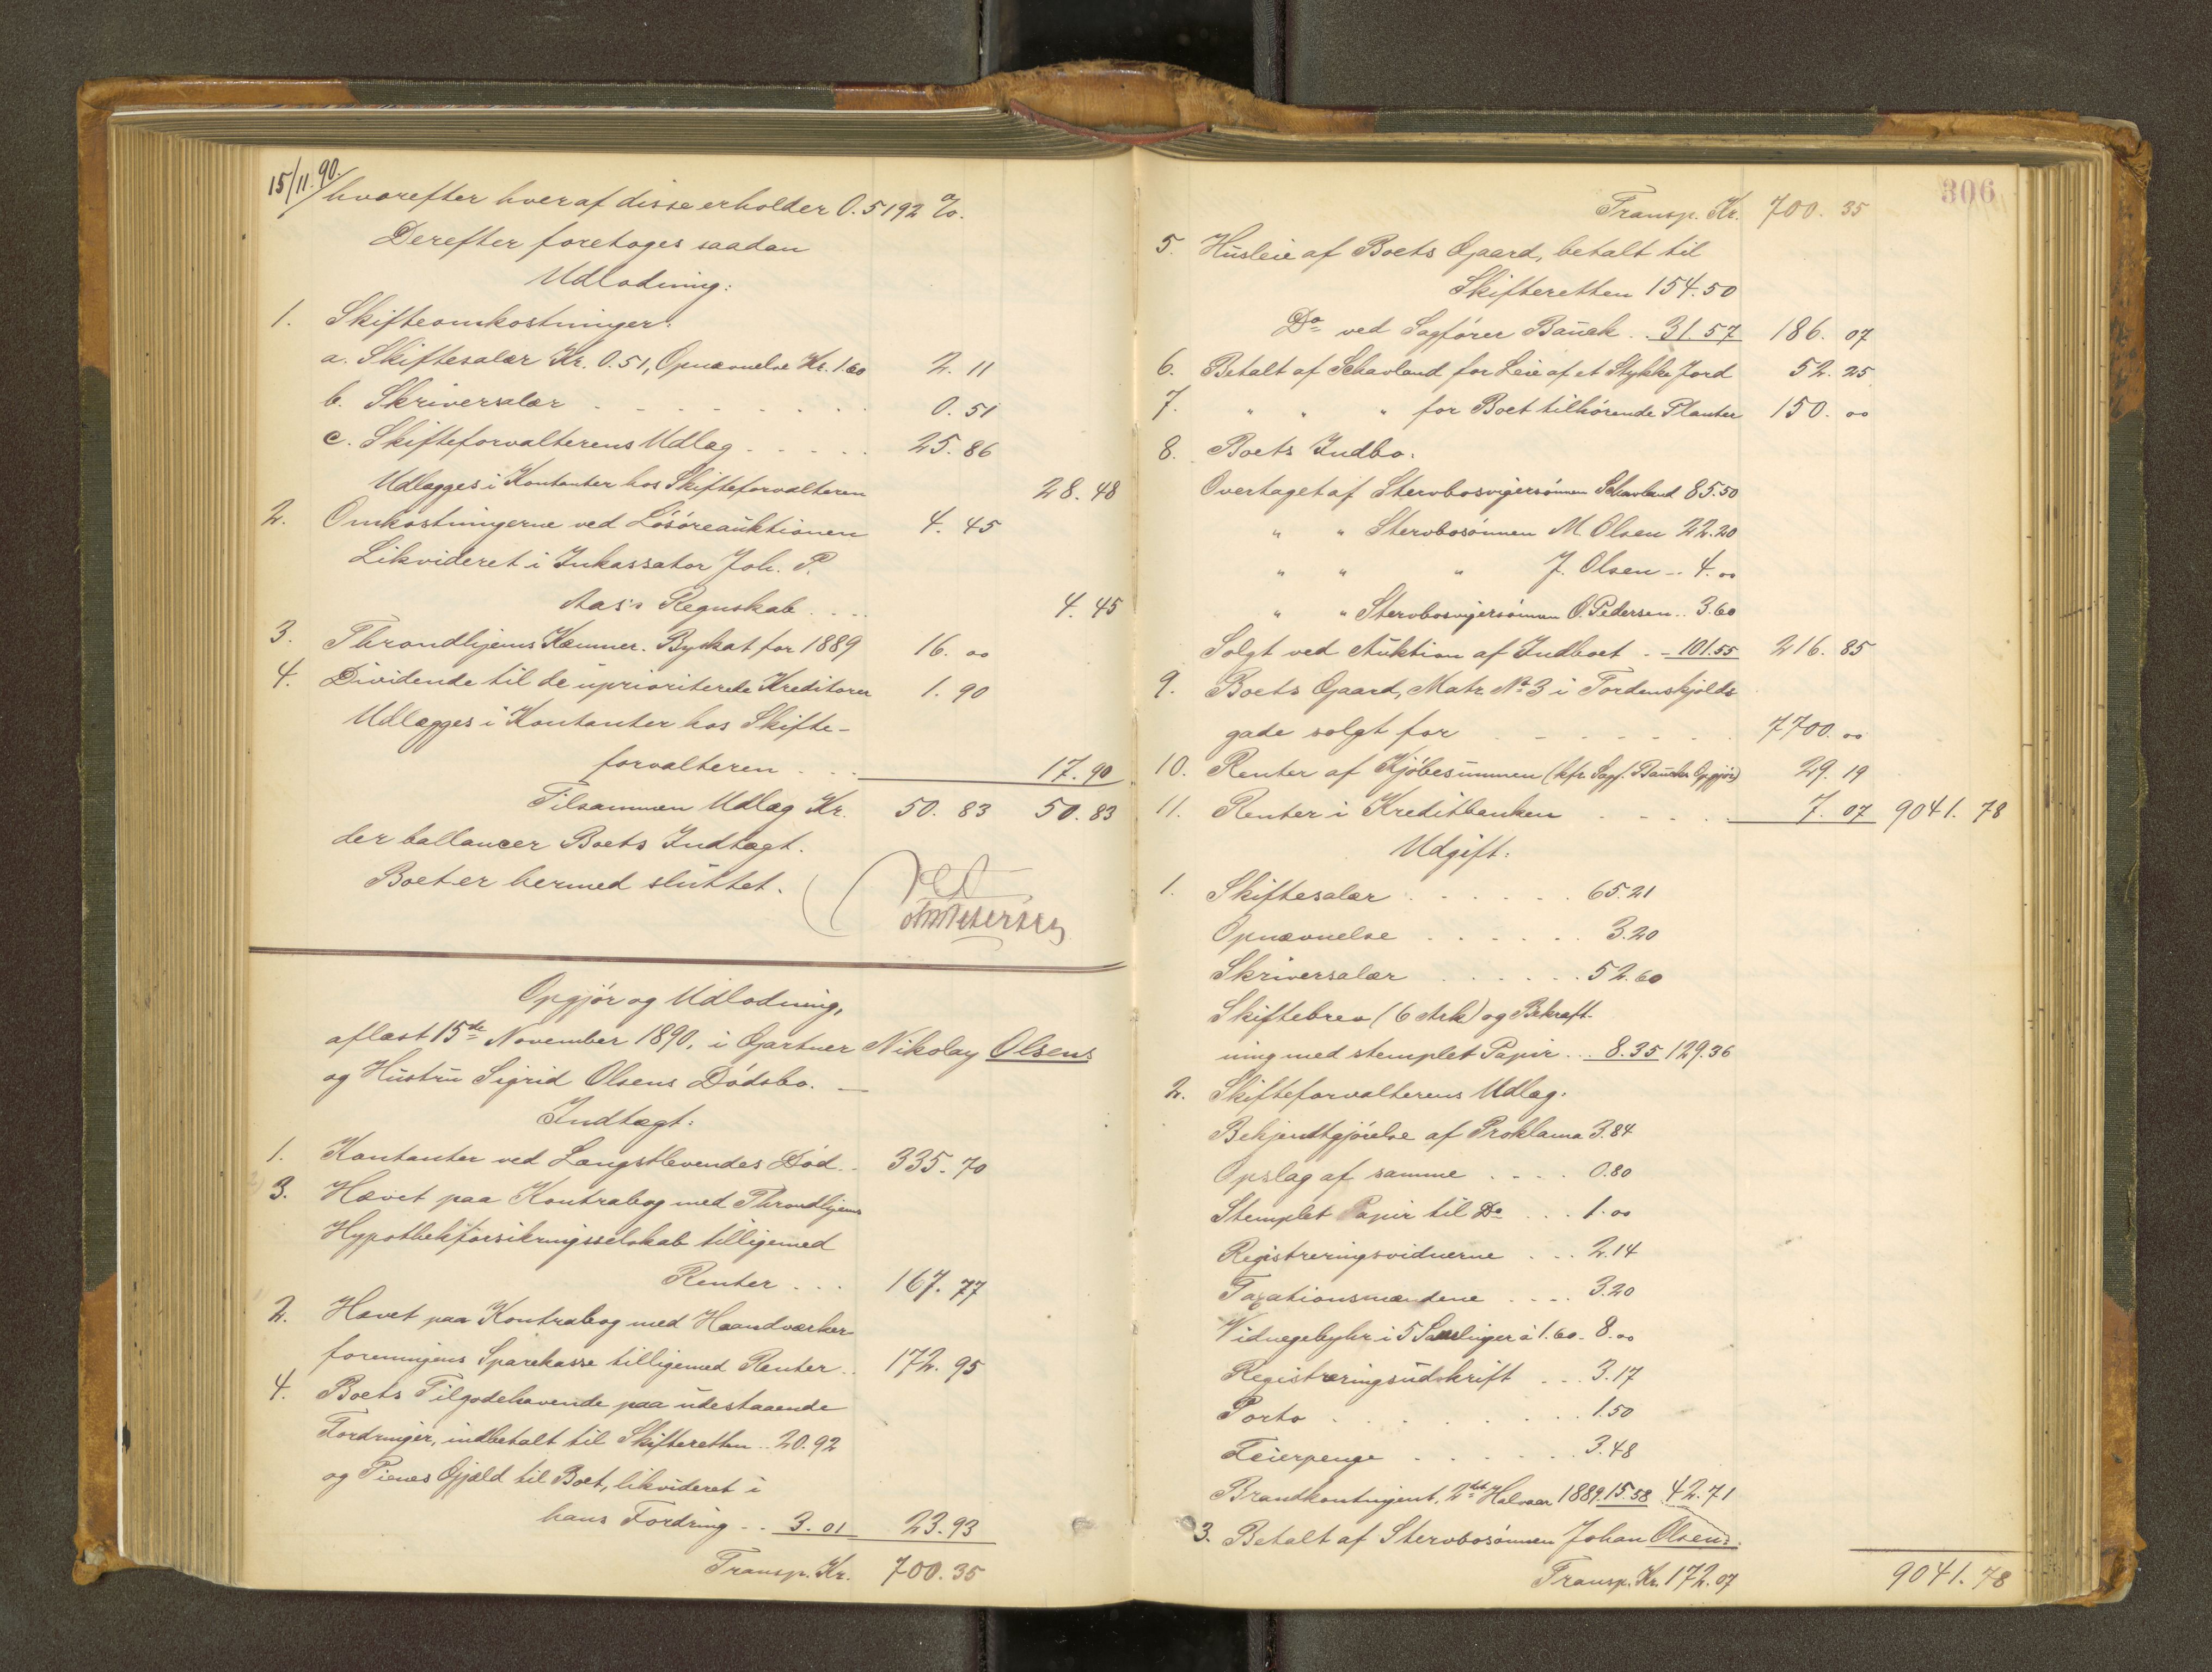 15/11.90.
hvorefter hver af disse erholder 0.5192 %.
Derefter foretoges saadan
Udlodning:
1. Skifteomkostninger:
a. Skiftesalær Kr. 0.51, Opnævnelse Kr. 1.60 2. 11
b. Skriversalær 0. 51
c. Skifteforvalterens Udlæg 25. 86
Udlægges i Kontanter hos Skifteforvalteren 28. 48
2. Omkostningerne ved Løsøreauktionen 4. 45
Likvideret i Inkassator Joh. P.
Aas's Regnskab 4. 45
3. Throndhjems Kæmner. Byskat for 1889 16. 00
4. Dividende til de uprioriterede Kreditorer 1. 90
Udlægges i Kontanter hos Skifte-
forvalteren 17. 90
Tilsammen Udlæg Kr. 50. 83 50. 83
der ballancer Boets Indtægt.
Boet er hermed sluttet.
Opgjør og Udlodning,
aflæst 15de November 1890, i Gartner Nikolay Olsens
og Hustru Sigrid Olsens Dødsbo.
Indtægt:
1. Kontanter ved Længstlevendes Død 335. 70
3. Hævet paa Kontrabog med Throndhjems
Hypothekforsikringsselskab tilligemed
Renter 167. 77
2. Hævet paa Kontrabog med Haandværker
foreningens Sparekasse tilligemed Renter 172. 95
4. Boets Tilgodehavende paa udestaaende
Fordringer, indbetalt til Skifteretten 20.92
og Pienes Gjæld til Boet, likvideret i
hans Fordring 3. 01 23. 93
Transp. Kr. 700. 35
306
Transp. Kr. 700. 35
5. Husleie af Boets Gaard, betalt til
Skifteretten 154.50
Do ved Sagfører Bauck 31.57 186. 07
6. Betalt af Schavland for Leie af et Stykke Jord 52. 25
7. " " " for Boet tilhørende Planter 150. 00
8. Boets Indbo.
Overtaget af Stervbosvigersønnen Schavland 85.50
" " Stervbosønnen M. Olsen 22.20
" " " J. Olsen 4.00
" " Stervbosvigersønnen O. Pedersen 3.60
Solgt ved Auktion af Indboet 101.55 216. 85
9. Boets Gaard, Matr. No 3 i Tordenskjolds
gade solgt for 7700. 00
10. Renter af Kjøbesummen (kfr. Sagf. Baucks Opgjør) 29. 19
11. Renter i Kreditbanken 7. 07 9041. 78
Udgift:
1. Skiftesalær 65.21
Opnævnelse 3.20
Skriversalær 52.60
Skiftebrev (6 Ark) og Bekræft-
ning med stemplet Papir 8.35 129.36
2. Skifteforvalterens Udlæg.
Bekjendtgjørelse af Proklama 3.84
Opslag af samme 0.80
Stemplet Papir til Do 1.00
Registreringsvidnerne 2.14
Taxationsmændene 3.20
Vidnegebyhr i 5 Samlinger à 1.60 8.00
Registreringsudskrift 3.17
Porto 1.50
Feierpenge 3.48
Brandkontingent, 2det Halvaar 1889 15.58 42.71
3. Betalt af Stervbosønnen Johan Olsen:
Transp. Kr. 172.07 9041. 78